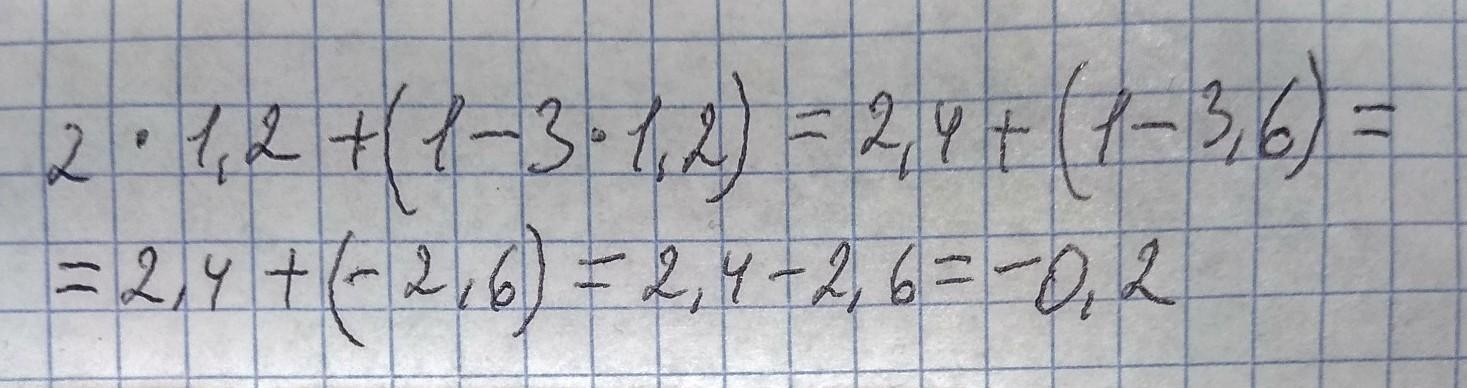 2 · 1,2 + (1 - 3 · 1,2) = 2,4 + (1 - 3,6) =
= 2,4 + (- 2,6) = 2,4 - 2,6 = -0,2